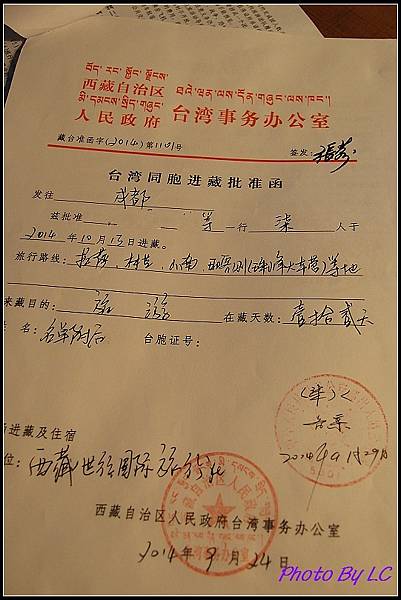 བོད་རང་སྐྱོང་ལྗོངས་
མི་དམངས་སྲིད་གཞུང་
西藏自治区
人民政府
台湾事务办公室
藏台准函字(2014)第1101号
签发:
台湾同胞进藏批准函
发往 成都
兹批准 等一行 柒 人于
2014 年10月13日进藏。
旅行路线: 拉萨、林芝、山南、日喀则(珠峰大本营)等地
来藏目的: 旅游 在藏天数: 壹拾贰天
名: 名单附后 台胞证号:
进藏及住宿
位: 西藏世纪国际旅行社
西藏自治区人民政府台湾事务办公室
2014年9月24日
Photo By LC